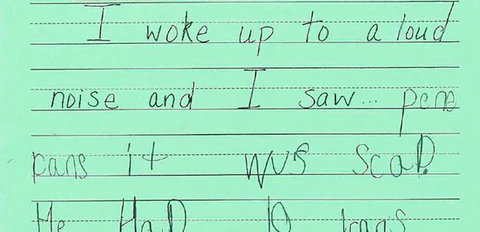 I woke up to a loud
noise and I saw... pene
pans it wus scaP.
He HaD 10